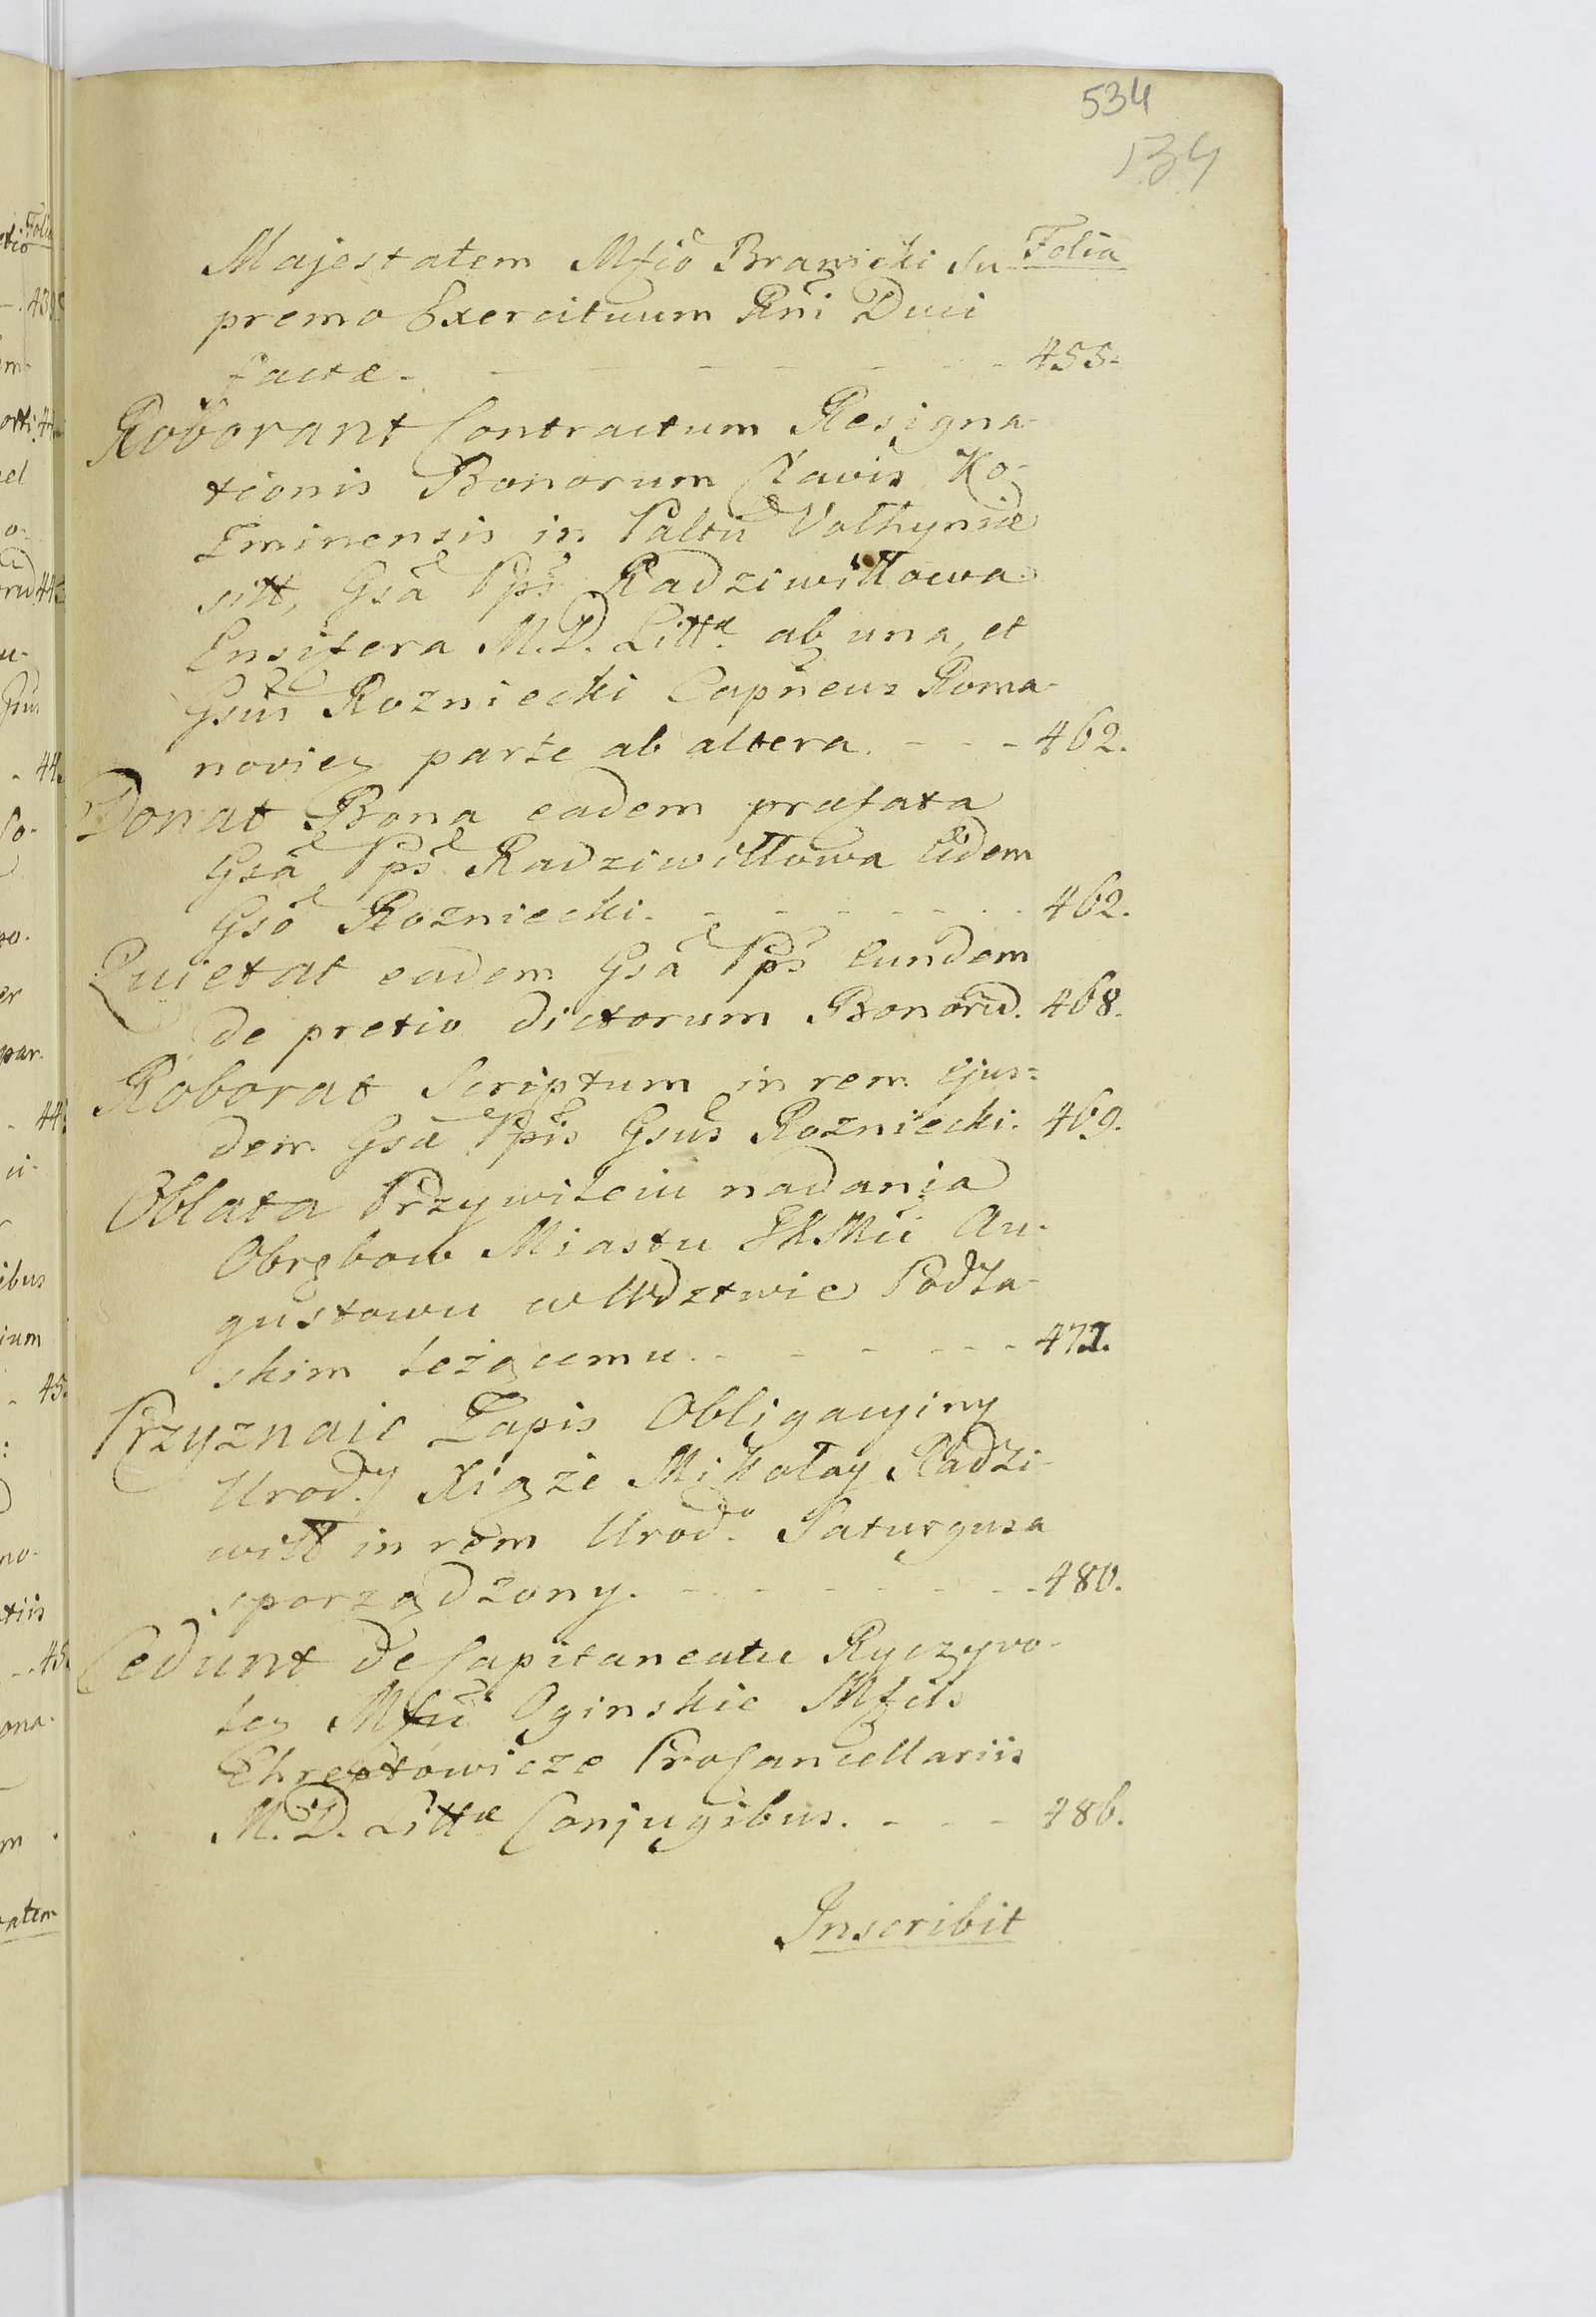 534
534
Folia
Majestatem Mfico Branicki Su
premo Exercituum Rni Duci
factæ. - - - - - - - - 455.
Roborant Contractum Resigna-
tionis Bonorum Clavis Ko-
zminensis in Paltu Volhyniæ
sitt, Gsa Ppś Radziwiłłowa
Ensifera M.D. Littæ. ab una, et
Gsus Rozniecki Capneus Roma-
noviey parte ab altera. - - - 462.
Donat Bona eadem præfata
Gsa Ppś Radziwiłłowa Eidem
Gso Rozniecki. - - - - - - 462.
Quietat eadem Gsa Ppś Eundem
de pretio dictorum Bonorũ. 468.
Roborat Scriptum in rem Ejus=
dem Gsæ Ppis Gsus Rozniecki. 469.
Oblata Przywileiu nadania
Obrębow Miastu JKMci Au-
gustowu w Wdztwie Podla-
skim leżącemu. - - - - - 471.
Przyznaie Zapis Obligacyiny
Urod.y Xiąże Mikołay Radzi-
wiłł in rem Urod.o Paturgusa
sporządzony. - - - - - - 480.
Cedunt de Capitaneatu Ryczyvo-
ley Mfci Oginskie Mfcis
Chreptowicze ProCancellariis
M.D. Littæ Conjugibus. - - - 486.
Inscribit